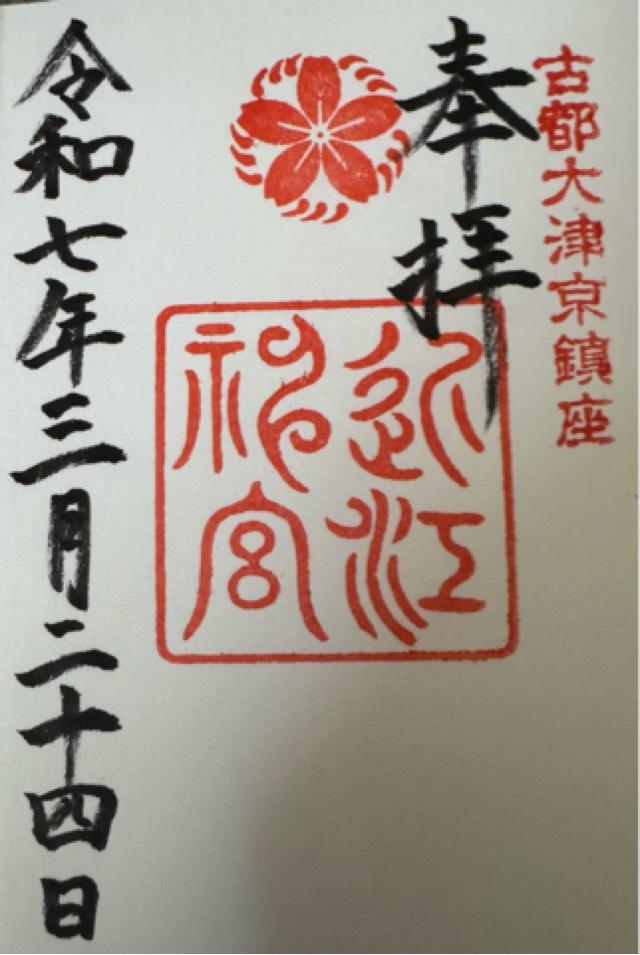 古都大津京鎮座
奉拝
近江
神宮
令和七年三月二十四日